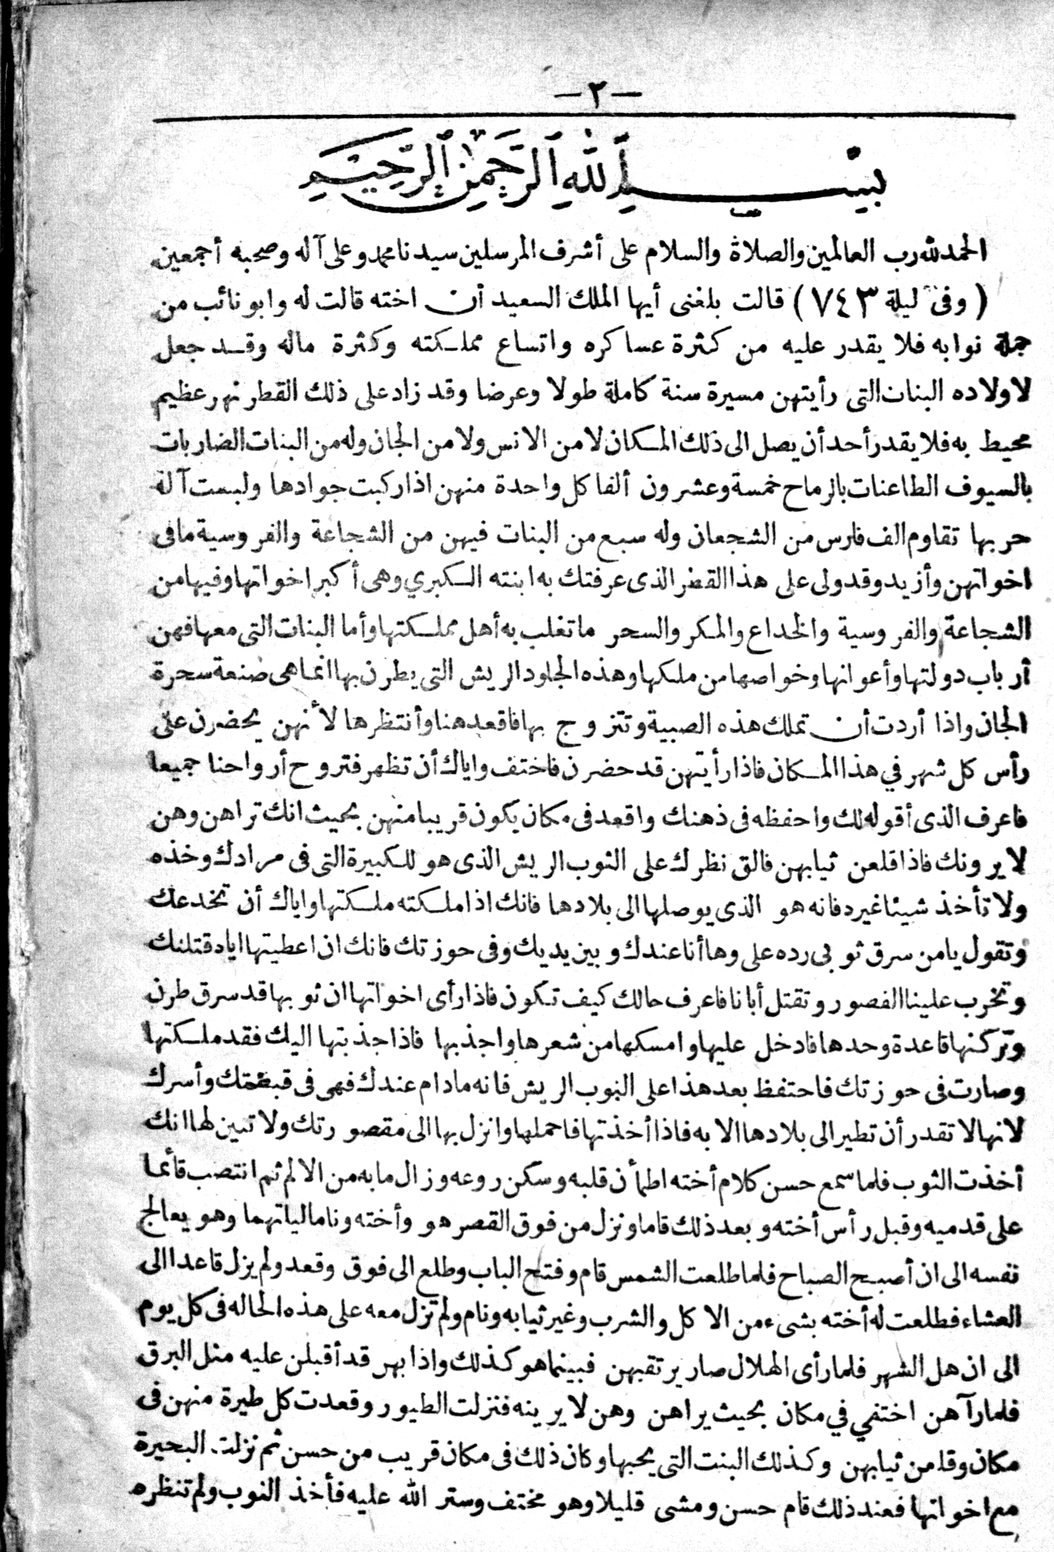 — ٢ —
بسم الله الرحمن الرحيم
الحمد لله رب العالمين والصلاة والسلام على أشرف المرسلين سيدنا محمد وعلى آله وصحبه أجمعين
( وفى ليلة ٧٤٣ ) قالت بلغنى أيها الملك السعيد أن اخته قالت له وابو نائب من
جملة نوابه فلا يقدر عليه من كثرة عساكره واتساع مملكته وكثرة ماله وقد جعل
لاولاده البنات التى رأيتهن مسيرة سنة كاملة طولا وعرضا وقد زاد على ذلك القطر نهر عظيم
محيط به فلا يقدر أحد أن يصل الى ذلك المكان لا من الانس ولا من الجان وله من البنات الضاربات
بالسيوف الطاعنات بالرماح خمسة وعشرون ألفا كل واحدة منهن اذا ركبت جوادها ولبست آلة
حربها تقاوم الف فارس من الشجعان وله سبع من البنات فيهن من الشجاعة والفروسية ما فى
اخواتهن وأزيد وقد ولى على هذا القطر الذى عرفتك به ابنته الكبري وهى أكبر اخواتها وفيها من
الشجاعة والفروسية والخداع والمكر والسحر ما تغلب به أهل مملكتها وأما البنات التى معها فهن
أرباب دولتها وأعوانها وخواصها من ملكها وهذه الجلود الريش التى يطرن بها انما هى صنعة سحرة
الجان واذا أردت أن تملك هذه الصبية وتتزوج بها فاقعد هنا وأنتظرها لأنهن يحضرن على
رأس كل شهر في هذا المكان فاذا رأيتهن قد حضرن فاختف واياك أن تظهر فتروح أرواحنا جميعا
فاعرف الذى أقوله لك واحفظه فى ذهنك واقعد فى مكان يكون قريبا منهن بحيث انك تراهن وهن
لا يرونك فاذا قلعن ثيابهن فالق نظرك على الثوب الريش الذى هو للكبيرة التى فى مرادك وخذه
ولا تأخذ شيئا غيره فانه هو الذى يوصلها الى بلادها فانك اذا ملكته ملكتها واياك أن تخدعك
وتقول يامن سرق ثوبى رده على وها أنا عندك وبين يديك وفى حوزتك فانك ان اعطيتها اياه قتلتك
وتخرب علينا القصور وتقتل أبانا فاعرف حالك كيف تكون فاذا رأى اخواتها ان ثوبها قد سرق طرن
وتركنها قاعدة وحدها فادخل عليها وامسكها من شعرها واجذبها فاذا جذبتها اليك فقد ملكتها
وصارت فى حوزتك فاحتفظ بعد هذا على الثوب الريش فانه مادام عندك فهى فى قبضتك وأسرك
لانها لا تقدر أن تطير الى بلادها الا به فاذا أخذتها فاحملها وانزل بها الى مقصورتك ولا تبين لها انك
أخذت الثوب فلما سمع حسن كلام أخته اطمأن قلبه وسكن روعه وزال ما به من الالم ثم انتصب قائما
على قدميه وقبل رأس أخته وبعد ذلك قاما ونزل من فوق القصر هو وأخته وناما ليلتهما وهو يعالج
نفسه الى ان أصبح الصباح فلما طلعت الشمس قام وفتح الباب وطلع الى فوق وقعد ولم يزل قاعدا الى
العشاء فطلعت له أخته بشىء من الاكل والشرب وغير ثيابه ونام ولم تزل معه على هذه الحاله فى كل يوم
الى ان هل الشهر فلما رأى الهلال صار يرتقبهن فبينما هو كذلك واذا بهن قد أقبلن عليه مثل البرق
فلما رآهن اختفي في مكان بحيث يراهن وهن لا يرينه فنزلت الطيور وقعدت كل طيرة منهن فى
مكان وقلعن ثيابهن وكذلك البنت التى يحبها وكان ذلك فى مكان قريب من حسن ثم نزلت البحيرة
مع اخواتها فعند ذلك قام حسن ومشى قليلا وهو مختف وستر الله عليه فأخذ الثوب ولم تنظره